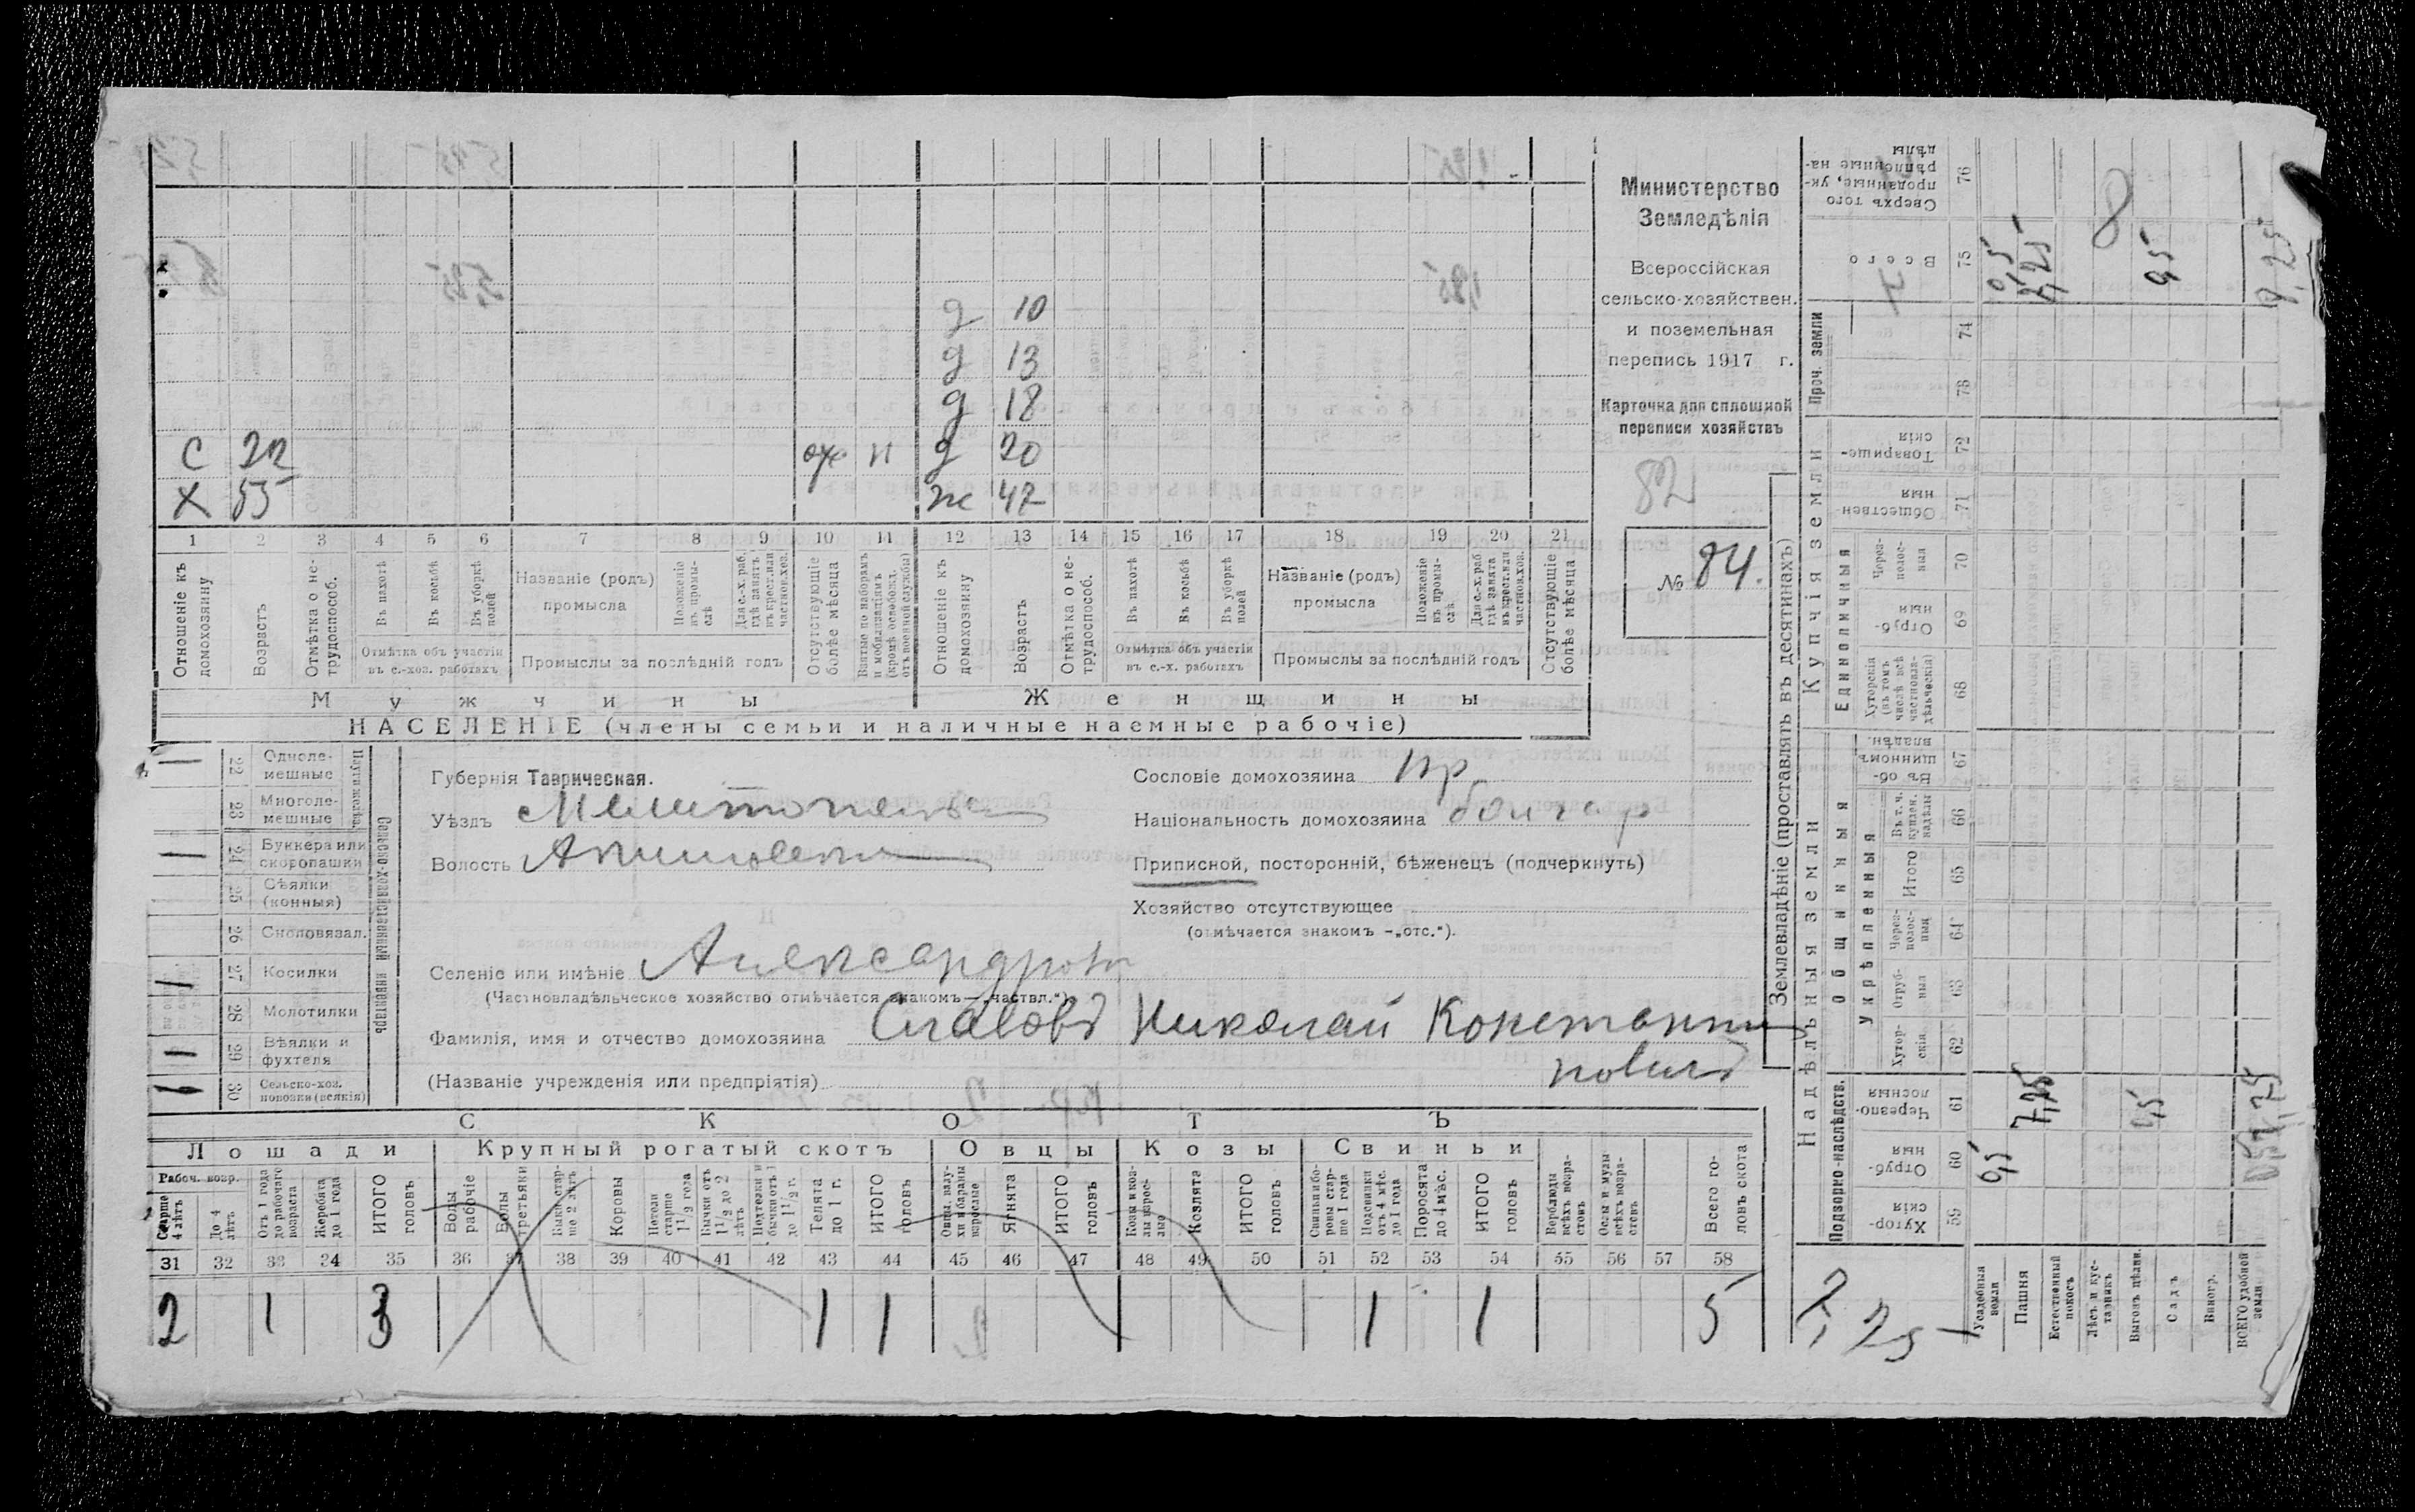 Министерство
Земледѣлія
Всероссійская
сельско-хозяйствен.
и поземельная
перепись 1917 г.
Карточка для сплошной
переписи хозяйствъ
82
№ 84.
д 10
д 13
д 18
С 22 н д 20
Х 55 ж 47
1 2 3 4 5 6 7 8 9 10 11 12 13 14 15 16 17 18 19 20 21
Отношеніе къ домохозяину
Возрастъ
Отмѣтка о нетрудоспособ.
Въ пахотѣ
Въ косьбѣ
Въ уборкѣ полей
Отмѣтка объ участіи въ с.-хоз. работахъ
Названіе (родъ) промысла
Положеніе въ промыслѣ
Для с.-х. раб. гдѣ занятъ въ крест. или частнов. хоз.
Промыслы за послѣдній годъ
Отсутствующіе болѣе мѣсяца
Взятые по наборамъ и мобилизаціямъ (кромѣ освобожд. отъ военной службы)
Отношеніе къ домохозяину
Возрастъ
Отмѣтка о нетрудоспособ.
Въ пахотѣ
Въ косьбѣ
Въ уборкѣ полей
Отмѣтка объ участіи въ с.-х. работахъ
Названіе (родъ) промысла
Положеніе въ промыслѣ
Для с.-х. раб. гдѣ занята въ крест. или частнов. хоз.
Промыслы за послѣдній годъ
Отсутствующіе болѣе мѣсяца
Мужчины Женщины
НАСЕЛЕНІЕ (члены семьи и наличные наемные рабочіе)
Сельско-хозяйственный инвентарь
22 Одноле-мешные
23 Многоле-мешные
24 Буккера или скоропашки
25 Сѣялки (конныя)
26 Сноповязал.
27 Косилки
28 Молотилки
29 Вѣялки и фухтеля
30 Сельско-хоз. повозки (всякія)
Губернія Таврическая.
Уѣздъ Мелитопольск
Волость
Сословіе домохозяина кр
Національность домохозяина болгар
Приписной, посторонній, бѣженецъ (подчеркнуть)
Хозяйство отсутствующее
(отмѣчается знакомъ -„отс.“).
Селеніе или имѣніе Александров
(Частновладѣльческое хозяйство отмѣчается знакомъ—„частвл.“)
Фамилія, имя и отчество домохозяина Славовъ Николай Константи
новичъ
(Названіе учрежденія или предпріятія)
СКОТЪ
Лошади Крупный рогатый скотъ Овцы Козы Свиньи
Рабоч. возр.
Старше 4 лѣтъ
До 4 лѣтъ
Отъ 1 года до рабочаго возраста
Жеребята до 1 года
ИТОГО головъ
Волы рабочіе
Волы третьяки
Быки старше 2 лѣтъ
Коровы
Нетели старше 1 1/2 года
Бычки отъ 1 1/2 до 2 лѣтъ
Подтелки и бычки отъ 1 до 1 1/2 г.
Телята до 1 г.
ИТОГО головъ
Овцы, валухи и бараны взрослые
Ягнята
ИТОГО головъ
Козы и козлы взрослые
Козлята
ИТОГО головъ
Свиньи и боровы старше 1 года
Подсвинки отъ 4 мѣс. до 1 года
Поросята до 4 мѣс.
ИТОГО головъ
Верблюды всѣхъ возрастовъ
Ослы и мулы всѣхъ возрастовъ
Всего головъ скота
31 32 33 34 35 36 37 38 39 40 41 42 43 44 45 46 47 48 49 50 51 52 53 54 55 56 57 58
2 1 3 1 1 1 1 5
Землевладѣніе (проставлять въ десятинахъ)
Надѣльныя земли Купчія земли Проч. земли
Подворно-наслѣдств. Общинныя Единоличныя
Укрѣпленныя
Хуторскія 59
Отрубныя 60
Черезполосныя 61
Хуторскія 62
Отрубныя 63
Черезполосныя 64
Итого 65
Въ т. ч. куплен. надѣлы 66
Въ общинномъ владѣн. 67
Хуторскія (въ томъ числѣ всѣ частновладѣльческія) 68
Отрубныя 69
Черезполосныя 70
Общественныя 71
Товарищескія 72
73
74
Всего 75
Сверхъ того проданные, укрѣпленные надѣлы 76
Усадебныя земли 0,5 0,5
Пашня 7,25 7,25
Естественный покосъ
Лѣсъ и кустарникъ
Выгонъ цѣлин. 1,5
Садъ
Виногр.
ВСЕГО удобной земли 9,25
8